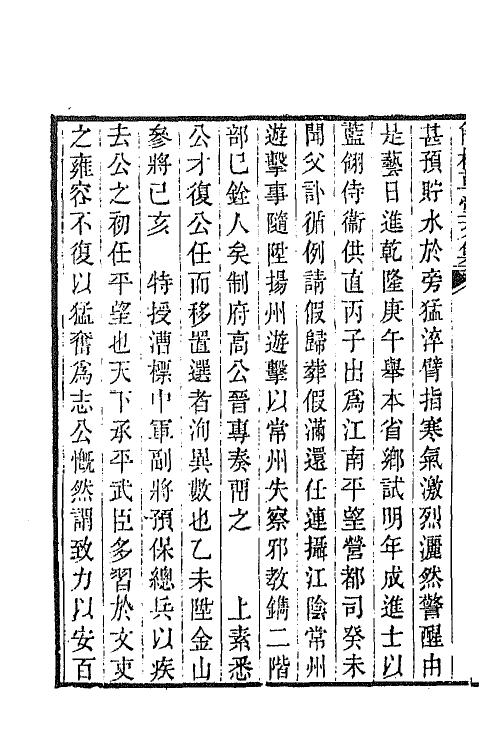 甚預貯水於旁猛淬臂指寒氣激烈灑然警醒由
是藝日進乾隆庚午舉本省鄉試明年成進士以
藍翎侍衞供直丙子出爲江南平望營都司癸未
聞父訃循例請假歸葬假滿還任連攝江陰常州
遊擊事隨陞揚州遊擊以常州失察邪教鐫二階
部已銓人矣制府高公晉專奏留之　上素悉
公才復公任而移置選者洵異數也乙未陞金山
參將己亥　特授漕標中軍副將預保總兵以疾
去公之初任平望也天下承平武臣多習於文吏
之雍容不復以猛奮爲志公慨然謂致力以安百